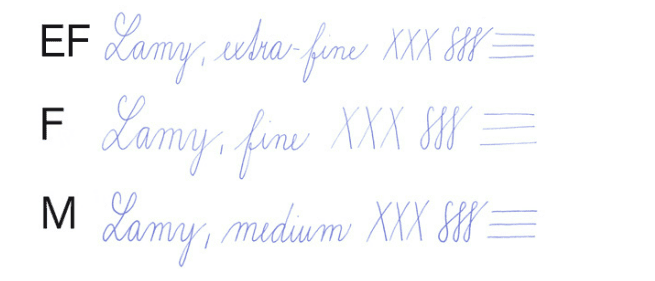 EF Lamy, extra-fine XXX
F Lamy, fine XXX
M Lamy, medium XXX